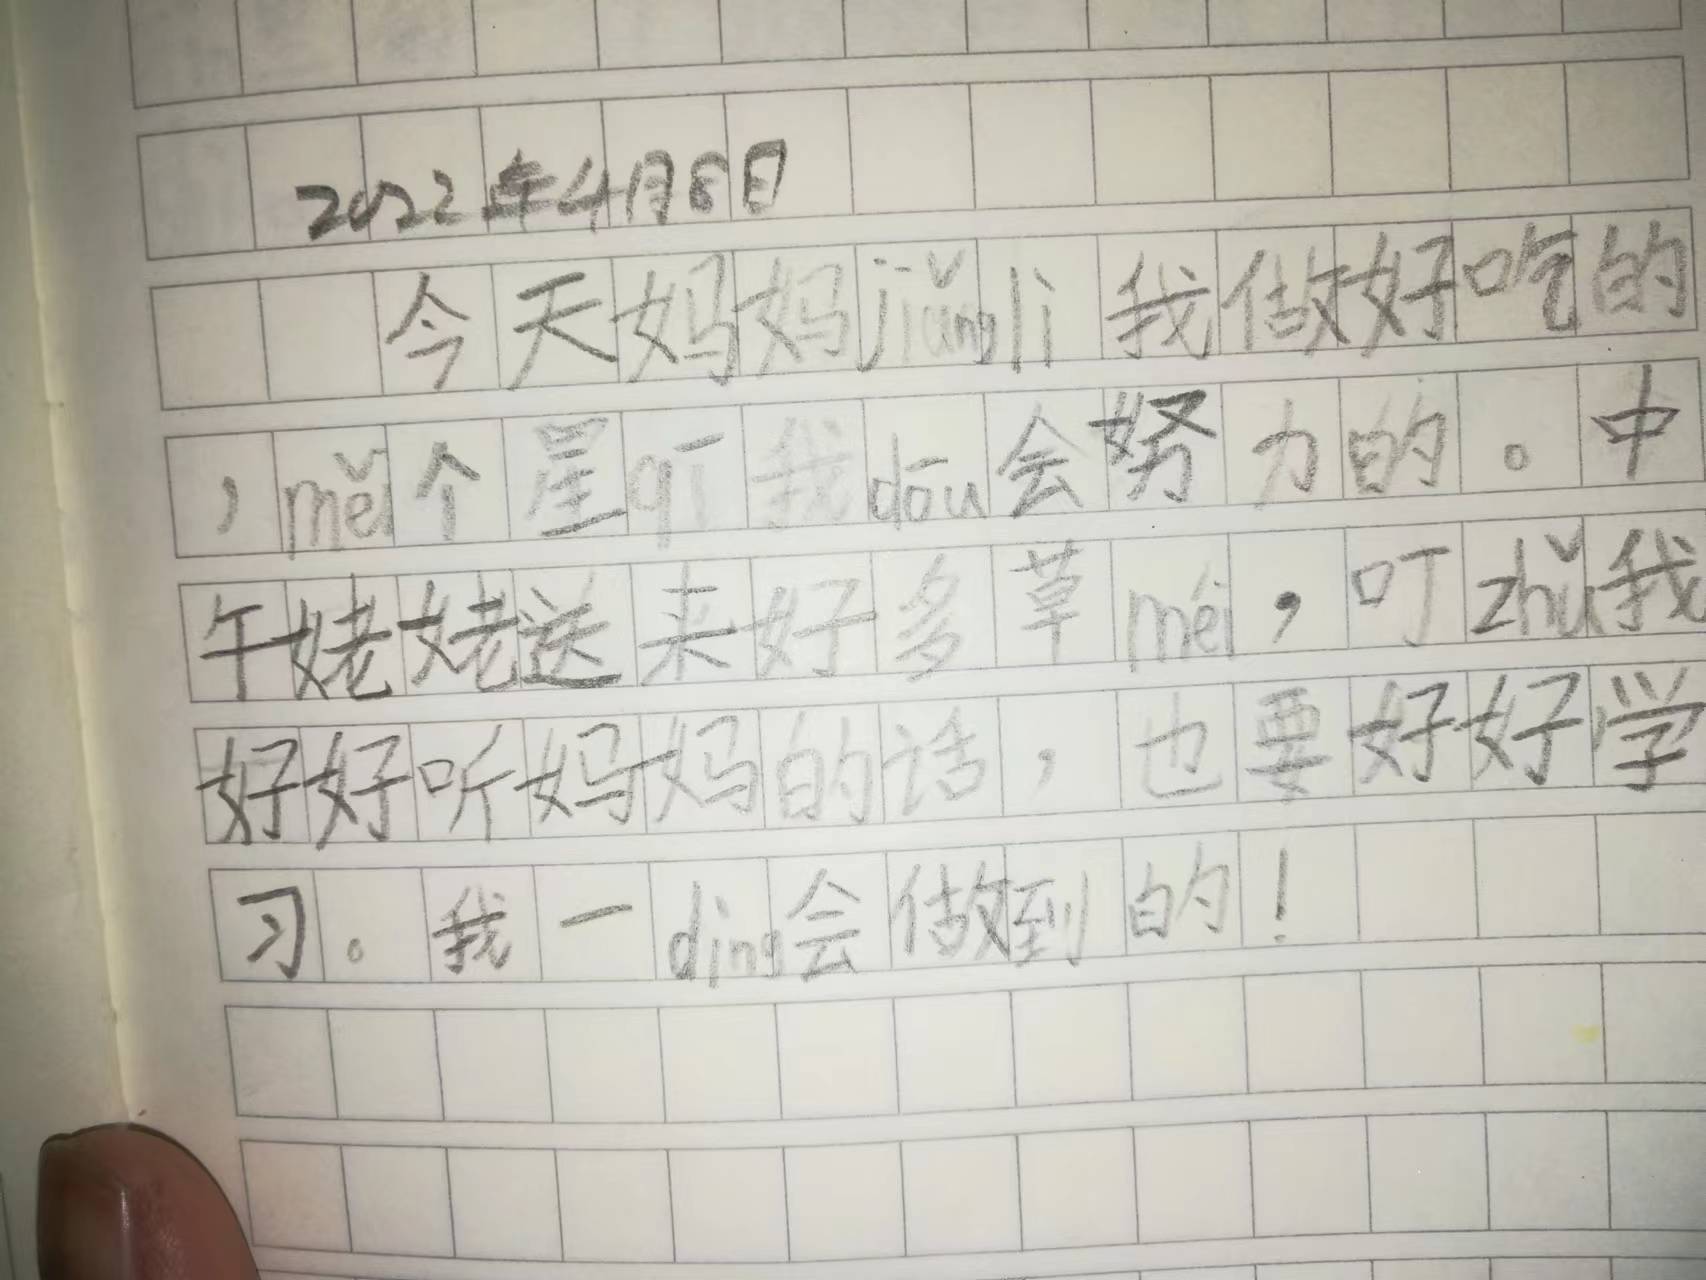 2022年4月8日
今天妈妈jiǎngli我做好吃的
，měi个星qī我dōu会努力的。中
午姥姥送来好多草méi，叮zhǔ我
好好听妈妈的话，也要好好学
习。我一ding会做到的！